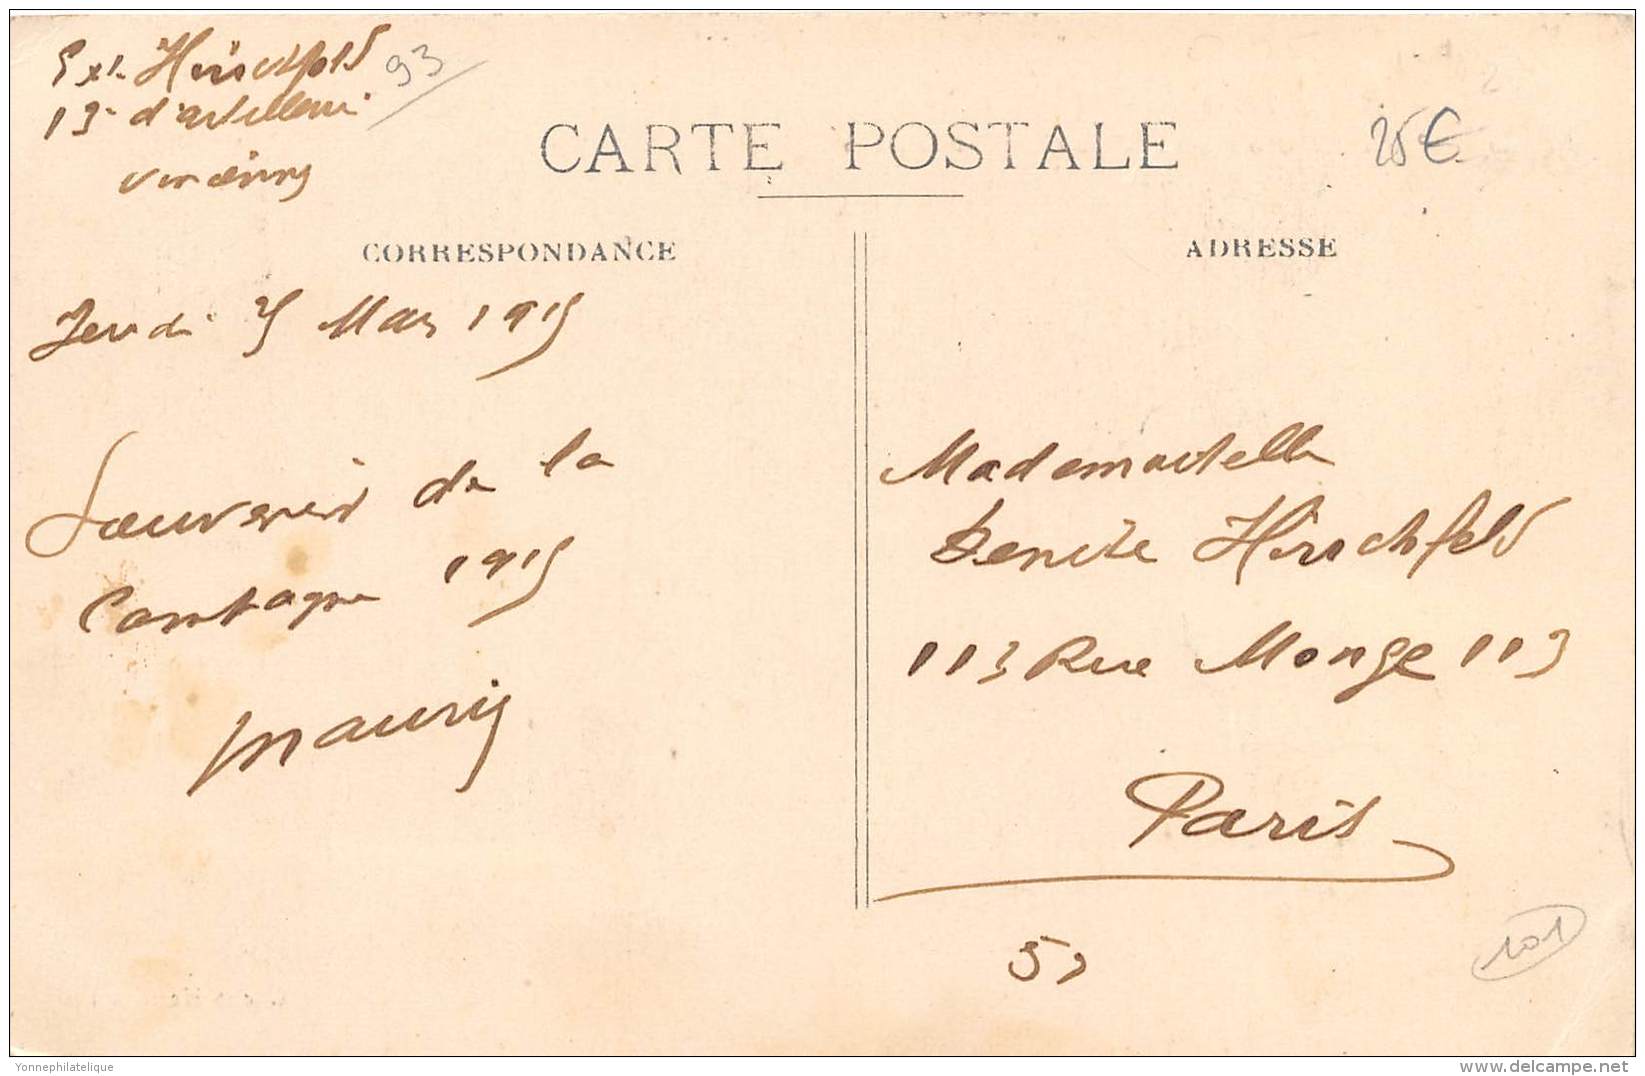 Ext. Hirschfeld
13e d'artillerie
Vincennes
93
CARTE POSTALE
25€
CORRESPONDANCE
ADRESSE
Jeudi Mars 1915
Souvenir de la
Campagne 1915
Mauris
Mademoiselle
Denise Hirschfeld
113 Rue Monge 113
Paris
101
Yonnephilatelique
www.delcampe.net